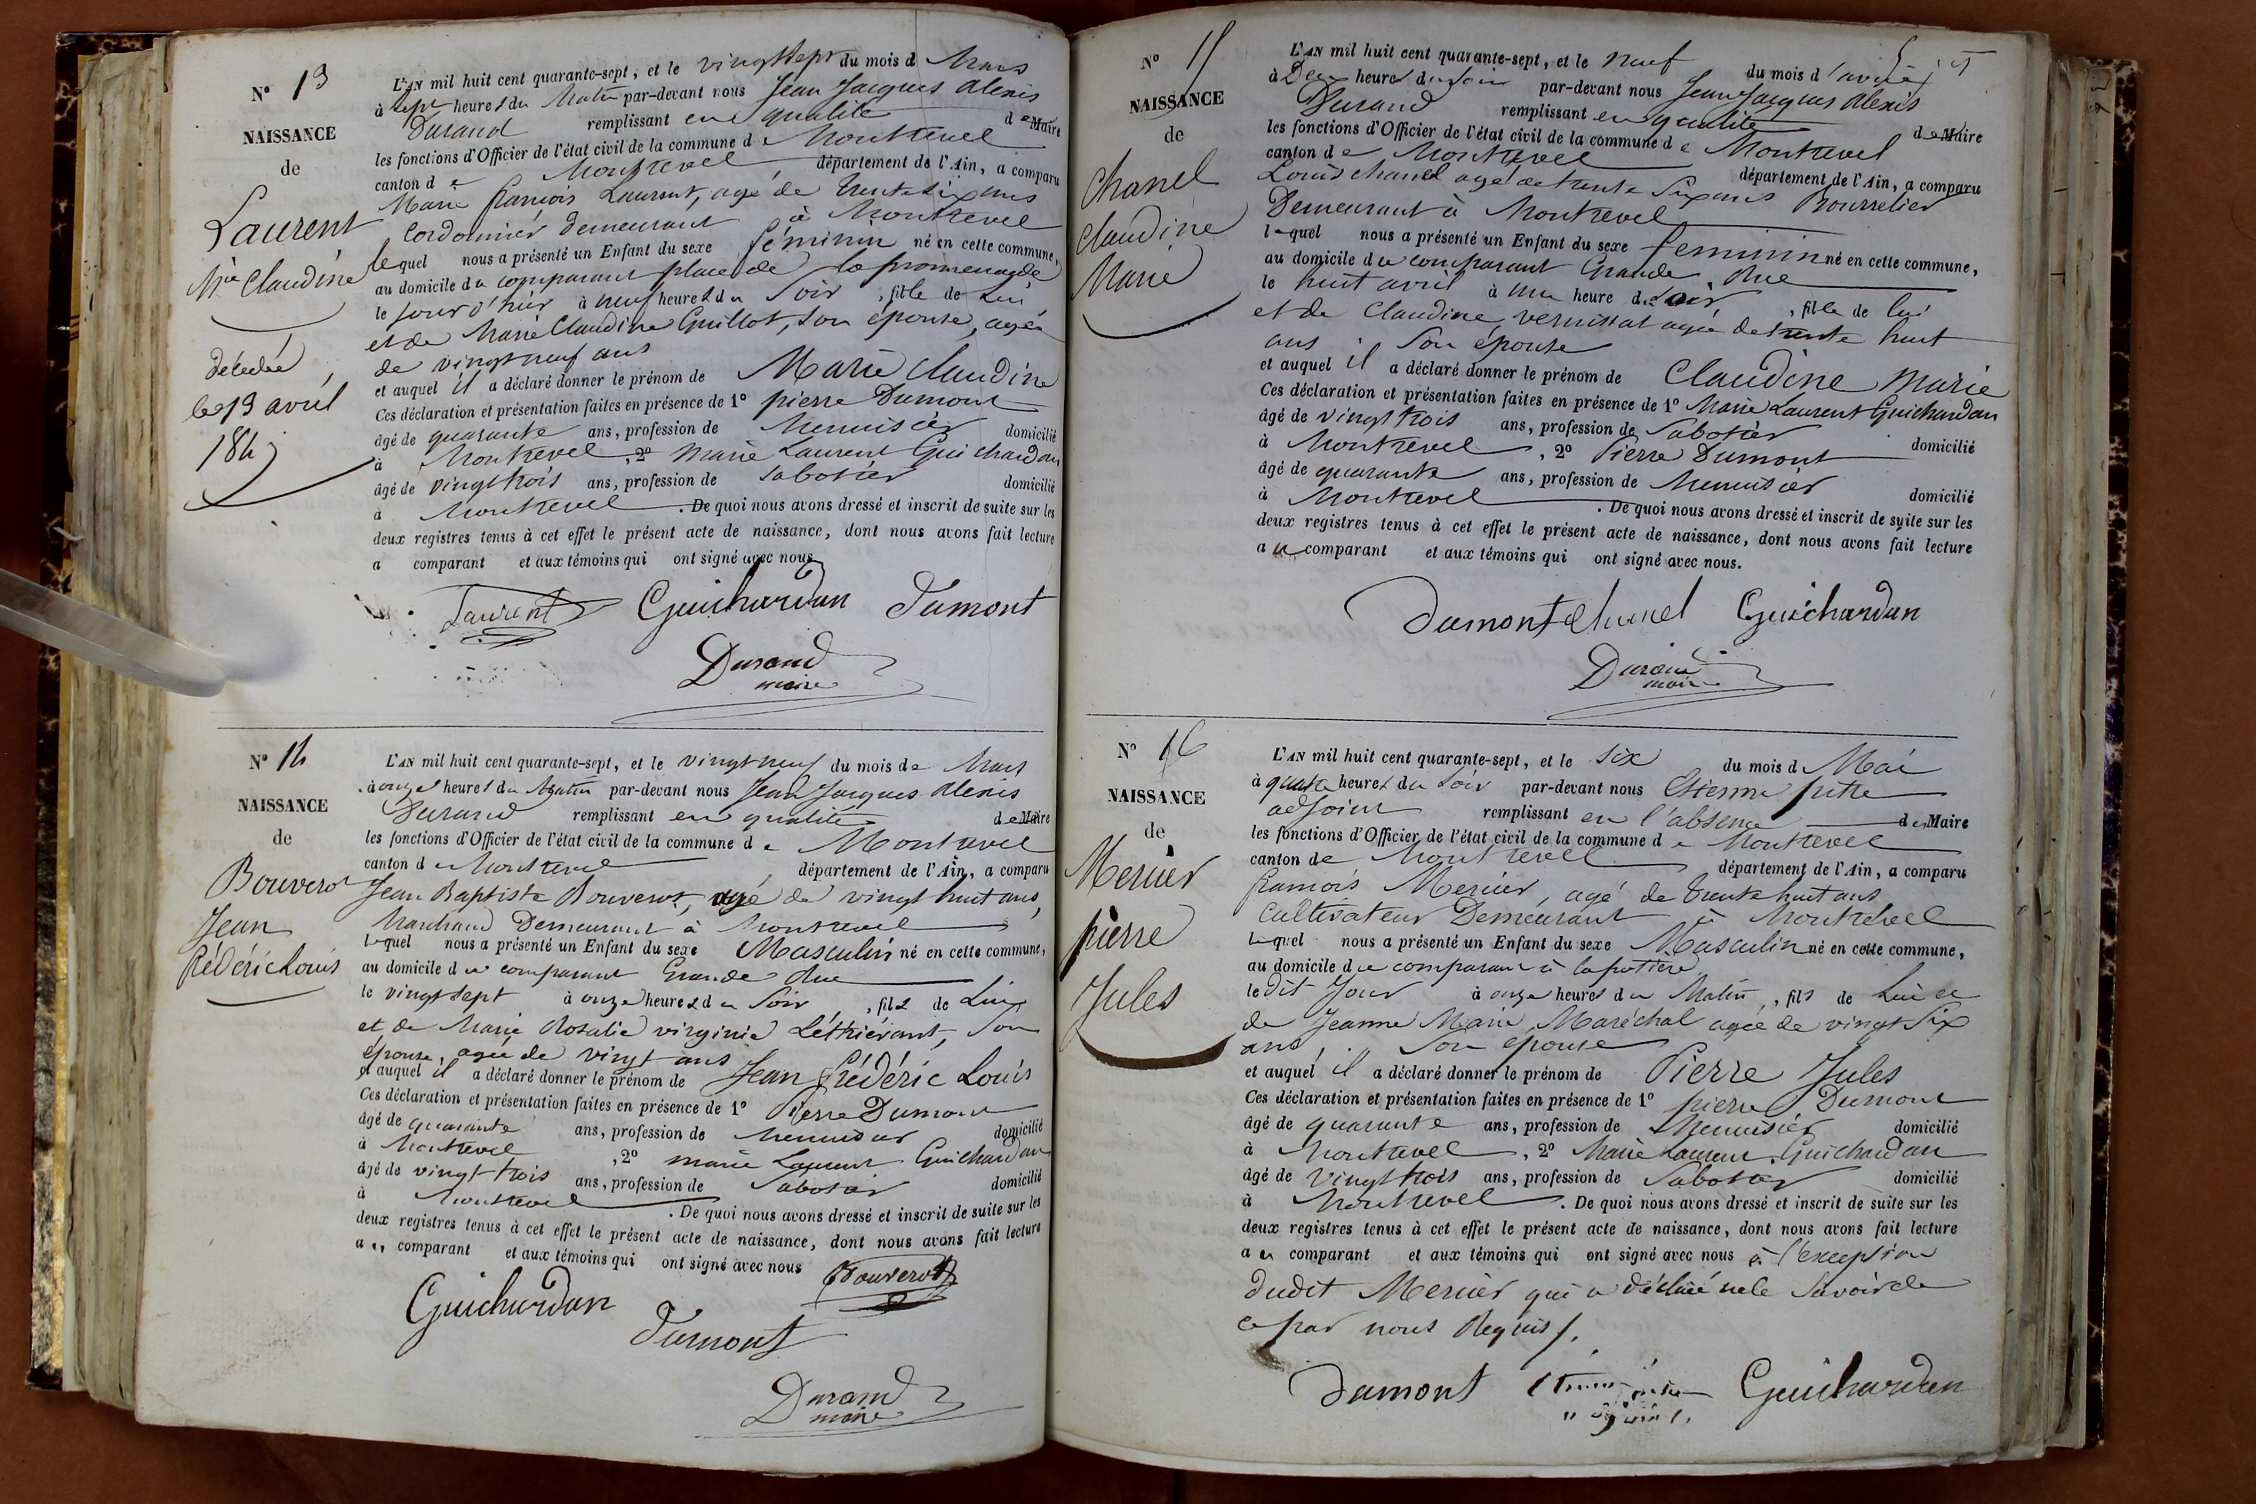 N° 13
NAISSANCE
de
Laurent
Mie Claudine
décédée
le 13 avril
184
L'AN mil huit cent quarante-sept, et le vingt sept du mois d Mars
à sept heures du Matin par-devant nous Jean Jacques Alexis
Durand remplissant en qualité de Maire
les fonctions d'Officier de l'état civil de la commune de Montrevel
canton de Montrevel département de l'Ain, a comparu
Marie françois Laurent, agé de trente six ans
Cordonnier demeurant à Montrevel
lequel nous a présenté un Enfant du sexe féminin né en cette commune,
au domicile du comparant place de la promenade
le jour d'hier à neuf heures du Soir, fille de Lui
et de Marie Claudine Guillot, son épouse, agée
de vingt neuf ans
et auquel il a déclaré donner le prénom de Marie Claudine
Ces déclaration et présentation faites en présence de 1° pierre Dumont
âgé de quarante ans, profession de Menuisier domicilié
à Montrevel, 2° Marie Laurent Guichardan
âgé de vingt trois ans, profession de Sabotier domicilié
à Montrevel. De quoi nous avons dressé et inscrit de suite sur les
deux registres tenus à cet effet le présent acte de naissance, dont nous avons fait lecture
a comparant et aux témoins qui ont signé avec nous
Laurent Guichardan Dumont
Durand
maire
N° 14
NAISSANCE
de
Bouverot
Jean
frédéric Louis
L'AN mil huit cent quarante-sept, et le vingt neuf du mois de Mars
à onze heures du Matin par-devant nous Jean Jacques Alexis
Durand remplissant en qualité de Maire
les fonctions d'Officier de l'état civil de la commune de Montrevel
canton de Montrevel, département de l'Ain, a comparu
Jean Baptiste Bouverot, agé de vingt huit ans,
Marchand Demeurant à Montrevel
lequel nous a présenté un Enfant du sexe Masculin né en cette commune,
au domicile du comparant Grande Rue
le vingt sept à onze heures du Soir, fils de Lui
et de Marie Rosalie virginie Léthiévant, Son
épouse, agée de vingt ans
et auquel il a déclaré donner le prénom de Jean frédéric Louis
Ces déclaration et présentation faites en présence de 1° Pierre Dumont
âgé de quarante ans, profession de Menuisier domicilié
à Montrevel, 2° marie Laurent Guichardan
âgé de vingt trois ans, profession de Sabotier domicilié
à Montrevel. De quoi nous avons dressé et inscrit de suite sur les
deux registres tenus à cet effet le présent acte de naissance, dont nous avons fait lecture
a u comparant et aux témoins qui ont signé avec nous Bouverot
Guichardan
Dumont
Durand
maire
N° 15
NAISSANCE
de
Chanel
Claudine
Marie
L'AN mil huit cent quarante-sept, et le neuf du mois d'avril
à Deux heures du Soir par-devant nous Jean Jacques Alexis
Durand remplissant en qualité de Maire
les fonctions d'Officier de l'état civil de la commune de Montrevel
canton de Montrevel département de l'Ain, a comparu
Louis chanel agé de trente Six ans Bourrelier
Demeurant à Montrevel
lequel nous a présenté un Enfant du sexe feminin né en cette commune,
au domicile du comparant Grande Rue
le huit avril à une heure du Soir, fille de lui
et de Claudine vernissat agée de trente huit
ans Son épouse
et auquel il a déclaré donner le prénom de Claudine Marie
Ces déclaration et présentation faites en présence de 1° Marie Laurent Guichardan
âgé de vingt trois ans, profession de Sabotier domicilié
à Montrevel, 2° Pierre Dumont
âgé de quarante ans, profession de Menuisier domicilié
à Montrevel. De quoi nous avons dressé et inscrit de suite sur les
deux registres tenus à cet effet le présent acte de naissance, dont nous avons fait lecture
a u comparant et aux témoins qui ont signé avec nous.
Dumont Chanel Guichardan
Durand
maire
N° 16
NAISSANCE
de
Mercier
pierre
Jules
L'AN mil huit cent quarante-sept, et le six du mois de Mai
à quatre heures du Soir par-devant nous Etienne pitre
adjoint remplissant en l'absence du Maire
les fonctions d'Officier de l'état civil de la commune de Montrevel
canton de Montrevel département de l'Ain, a comparu
françois Mercier, agé de trente huit ans
Cultivateur Demeurant à Montrevel
lequel nous a présenté un Enfant du sexe Masculin né en cette commune,
au domicile du comparant à la potière
le dit Jour à onze heures du Matin, fils de Lui et
de Jeanne Marie Maréchal agée de vingt Six
ans, Son épouse
et auquel il a déclaré donner le prénom de Pierre Jules
Ces déclaration et présentation faites en présence de 1° pierre Dumont
âgé de quarante ans, profession de Menuisier domicilié
à Montrevel, 2° Marie Laurent Guichardan
âgé de vingt trois ans, profession de Sabotier domicilié
à Montrevel. De quoi nous avons dressé et inscrit de suite sur les
deux registres tenus à cet effet le présent acte de naissance, dont nous avons fait lecture
a u comparant et aux témoins qui ont signé avec nous à l'exception
dudit Mercier qui a déclaré ne le Savoir de
ce par nous Requis.
Dumont Etienne pitre Guichardan
adjoint